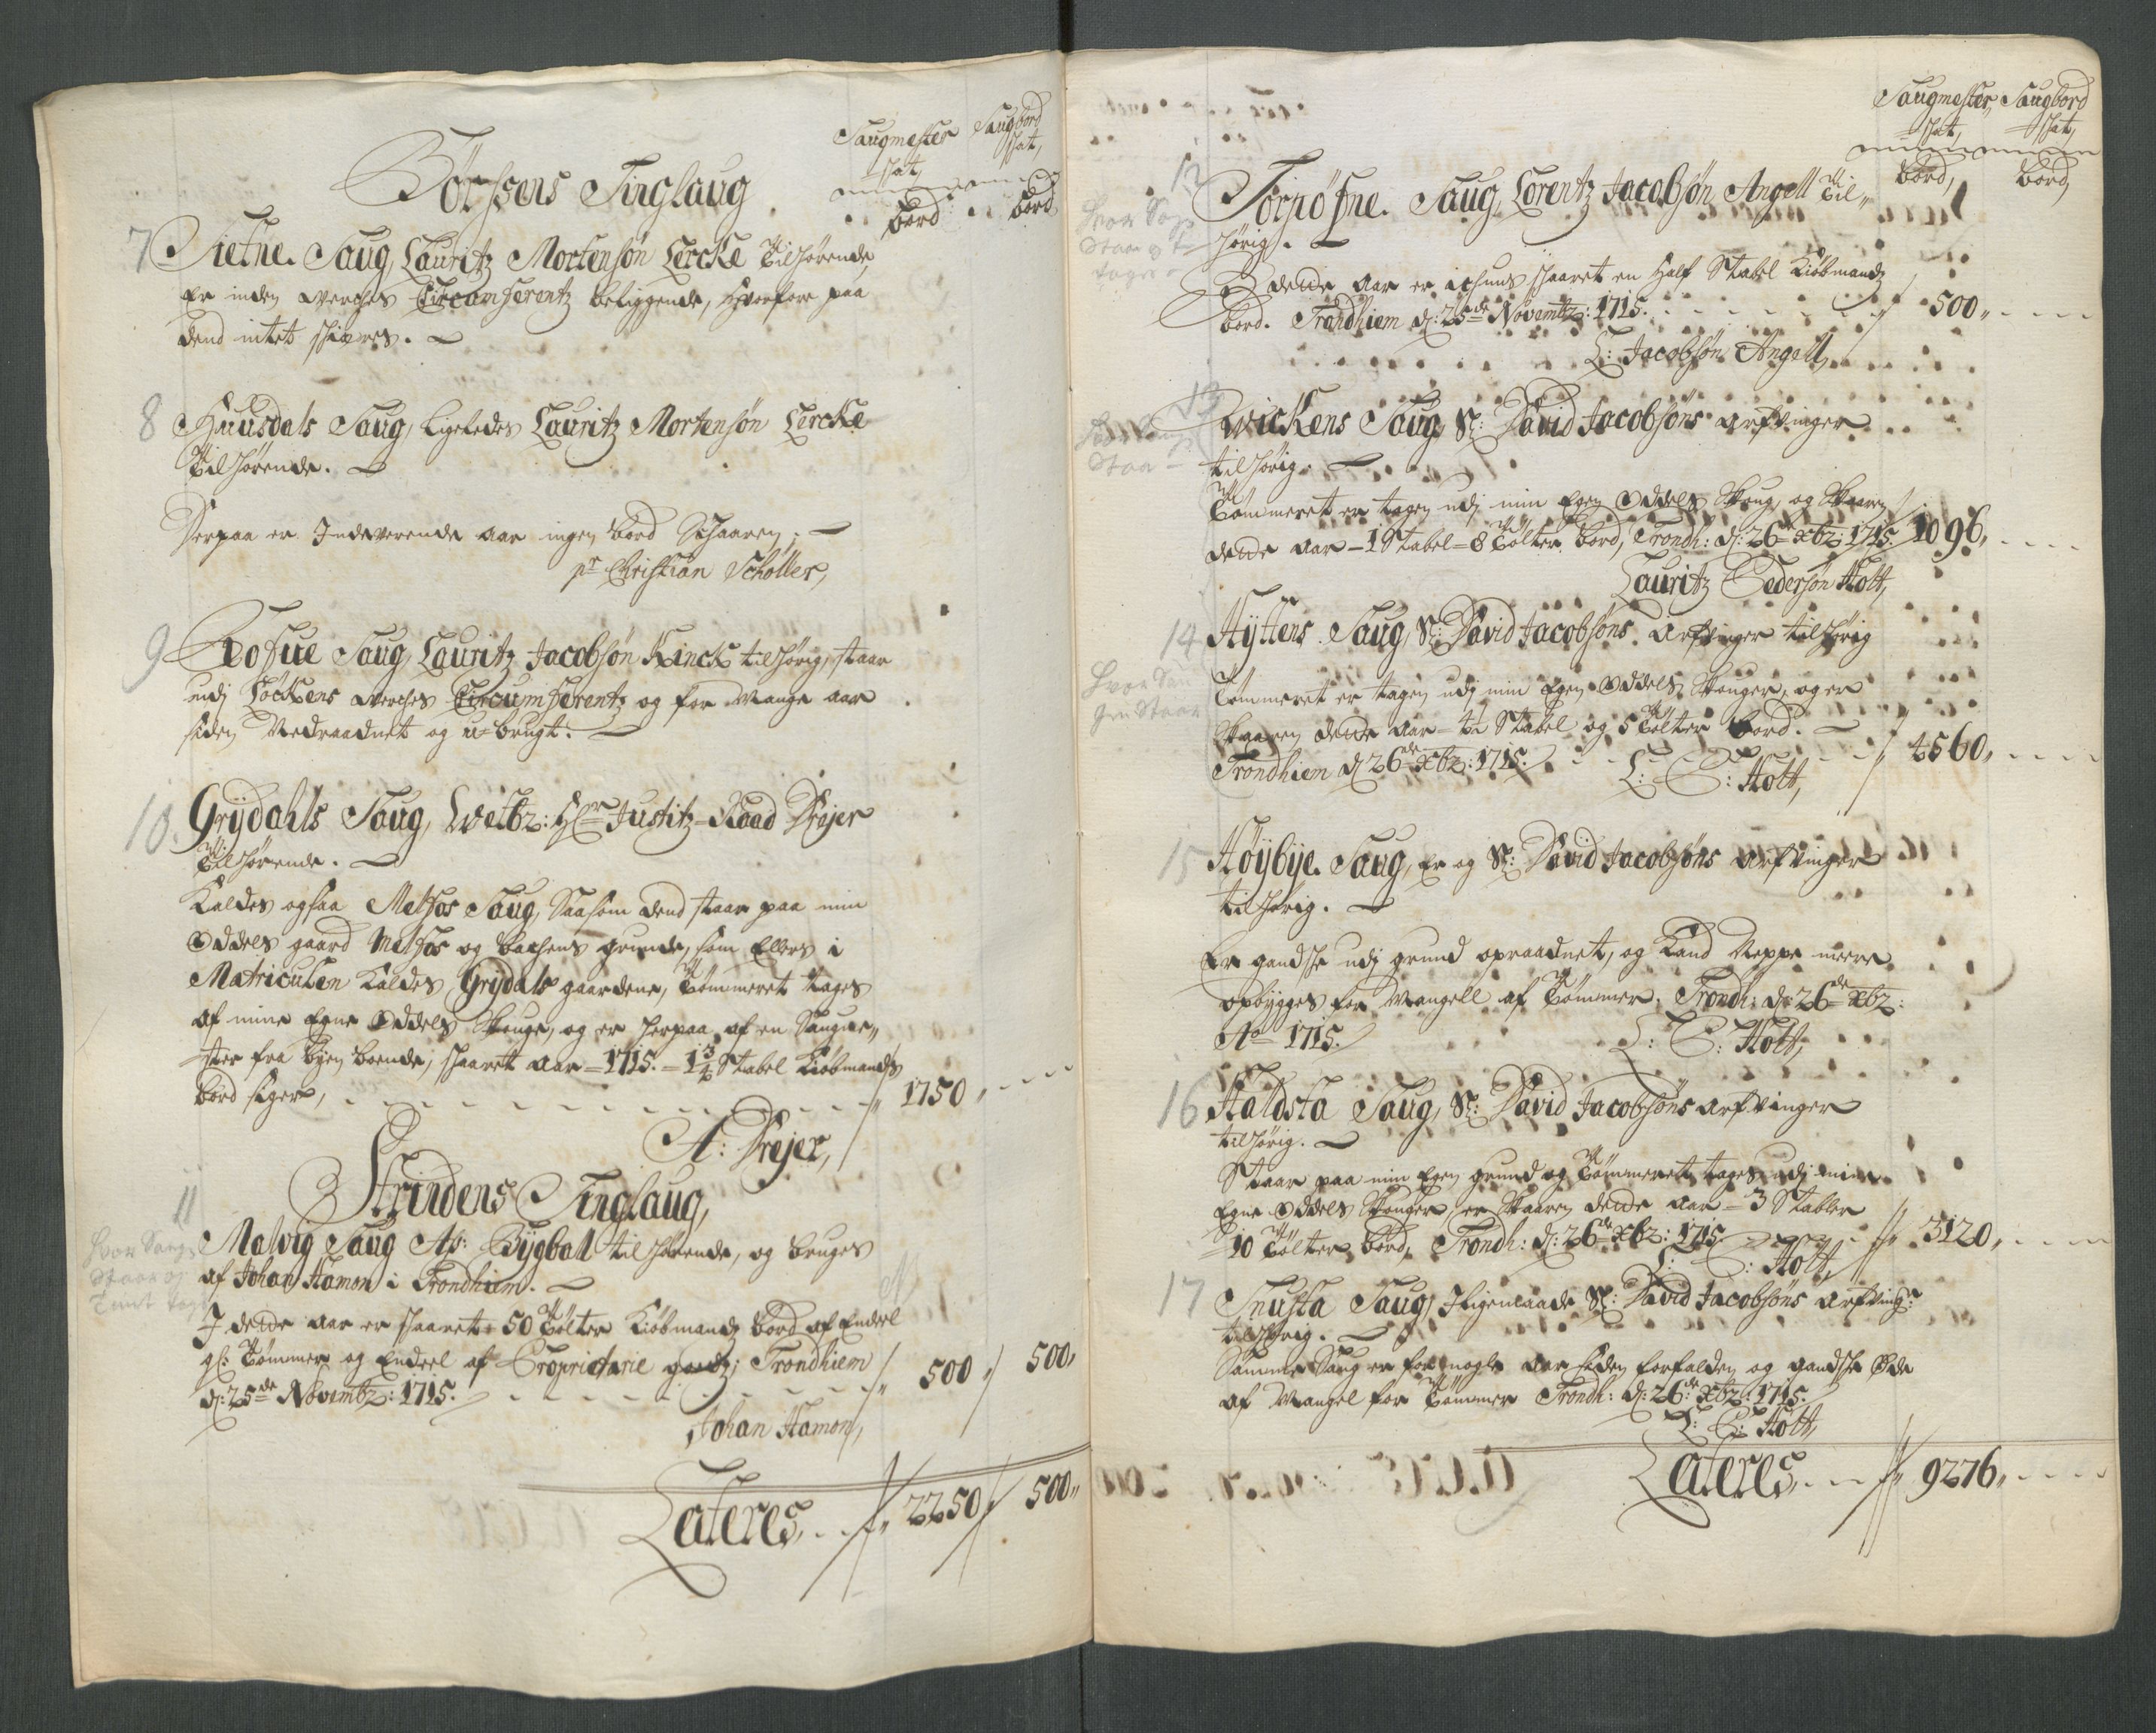 Saugmester Saugbord
skat, skat,
Börssens Tinglaug
bord bord
7 Sietne Saug, Lauritz Mortensøn Lercke tilhørende,
Er inden Werches Circumferentz beliggende, hvorfore paa
dend intet skieres.
8 Huusdals Saug, ligeledes Lauritz Mortensøn Lercke
tilhørende.
Herpaa er Indeverende aar ingen bord Schaaren.
pr Christian Schøller,
9 Saug, Lauritz Jacobsøn Kinck tilhørig, staar
udj Löckens Werches Circumferentz og for Mange aar
siden Nedraadnet og u-brugt.
10. Grydahls Saug, Welbr: Hr Justitz-Raad Drejer
tilhørende.
Kaldes ogsaa Melhos Saug, Saasom dend staar paa min
Oddels gaard Melhos og bachens grunde, som Ellers i
Matriculen Kaldes Grydals gaardene, tømmeret tages
af mine Egne Oddels Skouge, og er herpaa af en Saugme,,
ster fra byen boende, skaaret aar 1715. 1 3/4 Stabel Kiøbmands
bord siger, 1750,
A: Drejer,
Strindens Tinglaug,
11
hvor Saug
staar og
Tømt tag
Malvig Saug Ap: Bÿgbal tilhørende, og bruges
af Johan Hamon i Trondhiem.
I dette aar er skaaret 50 tølter Kiøbmands bord af Endeel
gl: tømmer og Endeel af Proprietarie gods; Trondhiem
d: 25de Novembr: 1715. 500 500,
Johan Hamon,
Lateres 2250 500,,
Saugmester Saugbord
skat, skat,
bord, bord,
12
hvor Sag
staar og t
tages
Torpøfne Saug, Lorentz Jacobsøn Angell til,,
hørig.
dette aar er ickuns skaaret en Half Stabel Kiøbmands
bord. Trondhiem d: 25de Novembr: 1715. 500,,
L: Jacobsøn Angell,
13
Staa
Wickens Saug, Sl: David Jacobsøns Arfvinger
tilhørig.
Tømmeret er tagen udj min Egen Oddels Skoug, og Skaaren
dette aar 1 Stabel 8 tølter bord, Trondh: d: 26de xbr: 1715. 1096,
Lauritz Pedersøn Holt,
14
hvor Sau
gen staar
Hÿttens Saug, Sl: David Jacobsøns Arfvinger tilhørig
Tømmeret er tagen udj min Egen Oddels Skouger, og er
Skaaren dette aar 4 1/2 Stabel og 5 tølter bord.
Trondhiem d 26de xbr: 1715. 4560,
L: P: Holt,
15 Høÿbÿe Saug, Er og Sl: David Jacobsøns Arfvinger
tilhørig.
Er gandske udj grund opraadnet, og Kand Neppe mere
opbygges for Mangell af Tømmer. Trondh: d: 26de xbr:
Ao 1715.
L: P: Holt,
16 Haldsta Saug, Sl: David Jacobsøns Arfvinger
tilhørig.
Staar paa min Egen grund og Tømmeret tages udj mine
Egne Oddels Skouger, er Skaaren dette aar 3 Stabler
10 tølter bord, Trondh: d: 26de xbr: 1715. 3120,
L: P: Holt,
17 Snusta Saug, Iligemaade Sl: David Jacobsøns Arfving:r
tilhørig.
Samme Saug er for nogle aar siden forfalden og gandske Øde
af Mangel for Tømmer Trondh: d: 26de xbr: 1715.
L: P: Holt,
Lateres 9276,